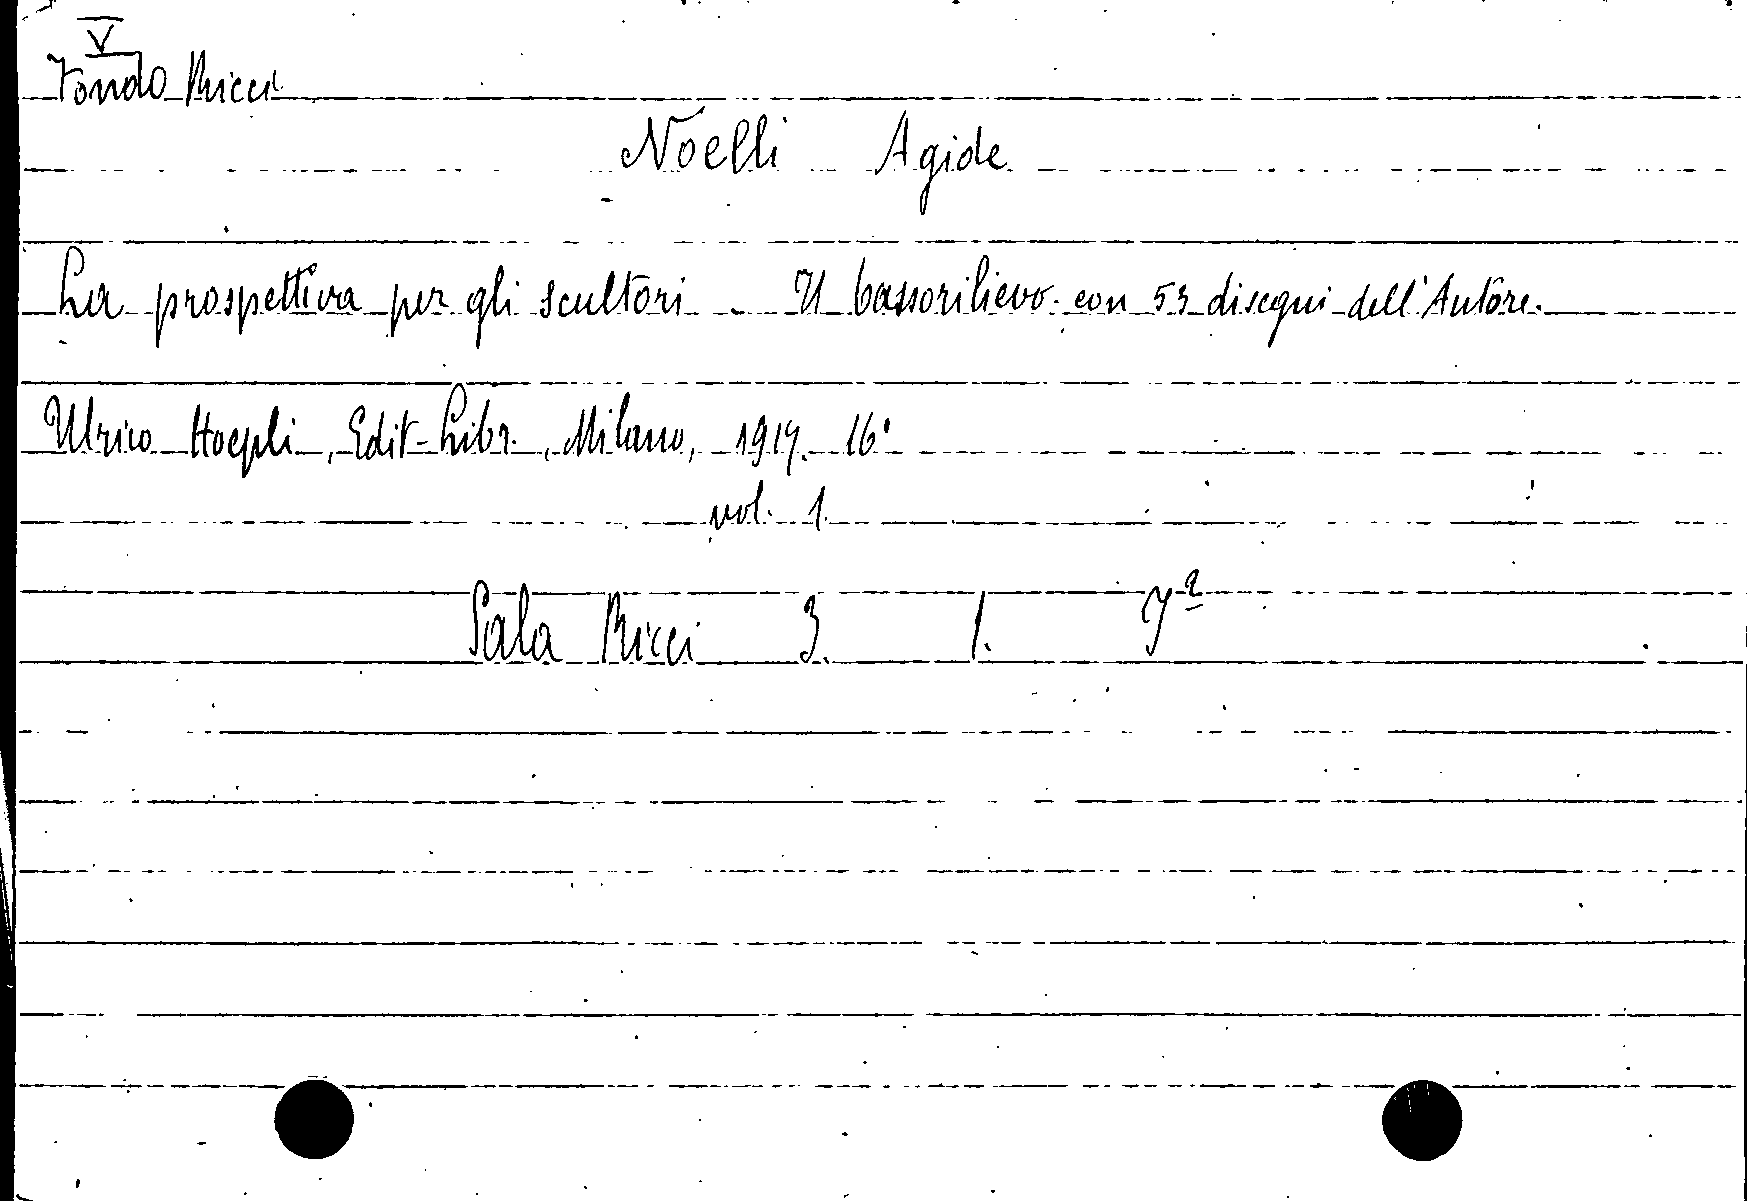 V
Fondo Ricci
Noelli Agide
La prospettiva per gli scultori. Il bassorilievo. con 53 disegni dell'Autore.
Ulrico Hoepli, Edit-Libr., Milano, 1914. 16°
vol. 1.
Sala Ricci 3. 1. 7ª